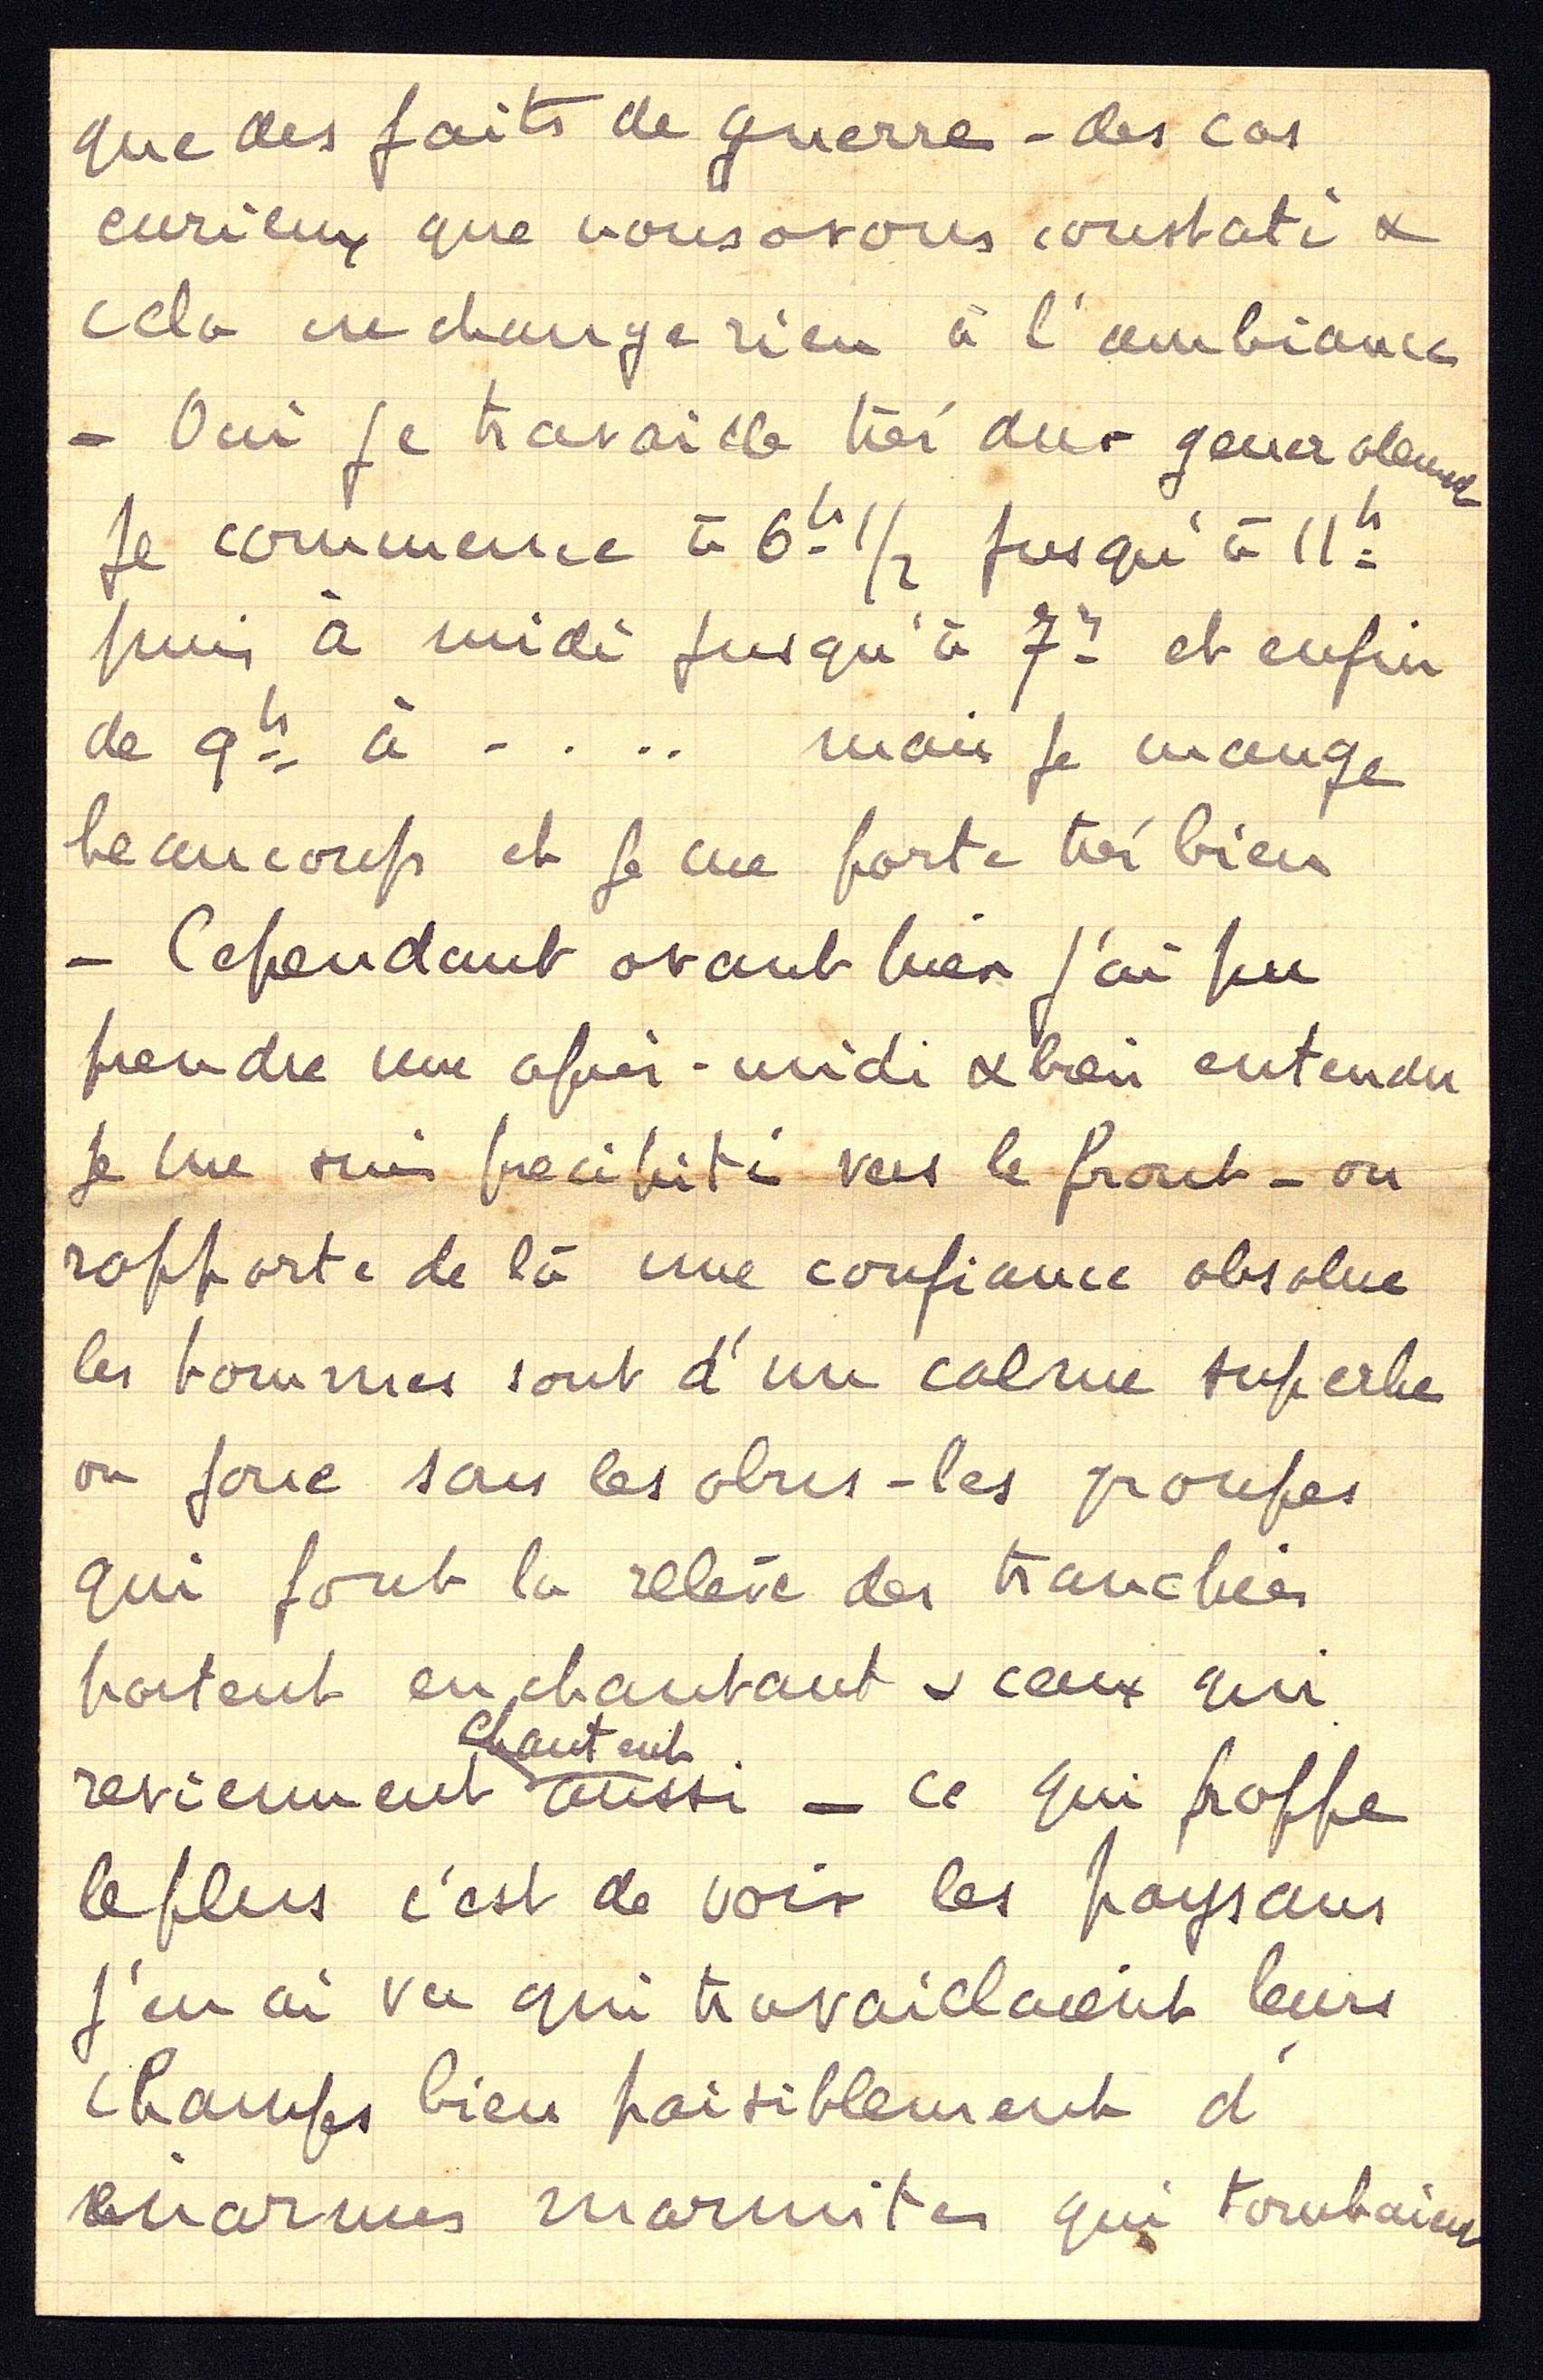 que des faits de guerre - des cas
curieux que nous avons constaté &
cela ne change rien à l'ambiance
- Oui je travaille très dur generalement
Je commence à 6h 1/2 jusqu'à 11h
puis à midi jusqu'à 7h et enfin
de 9h à - . .. mais je mange
beaucoup et je me porte très bien
- Cependant avant hier j'ai pu
prendre une après-midi & bien entendu
je me suis precipité vers le front - on
rapporte de là une confiance absolue
les hommes sont d'un calme superbe
on joue sous les obus - les groupes
qui font la relève des tranchées
partent en chantant & ceux qui
chantent
reviennent aussi - ce qui frappe
le plus c'est de voir les paysans
j'en ai vu qui travaillaient leurs
champs bien paisiblement d'
énormes marmites qui tombaient